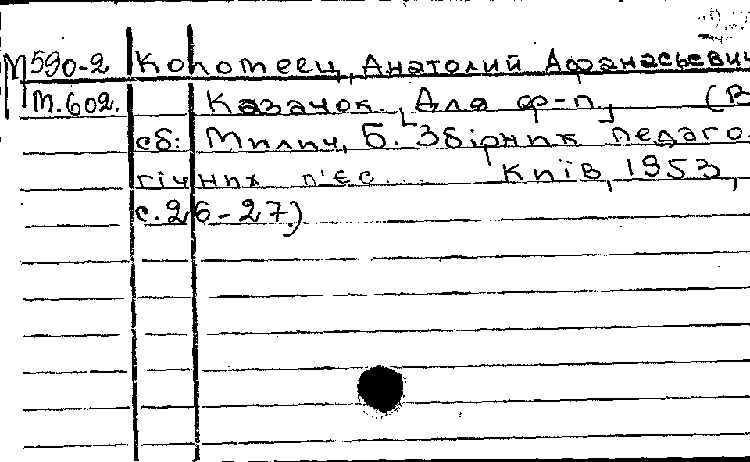 М590-2 Коломеец, Анатолий Афанасьевич
т.602. Казачок. [Для ф-п.] (В
сб: Милич, Б. Збірник педаго-
гічних п'єс... Київ, 1953,
с. 26-27.)